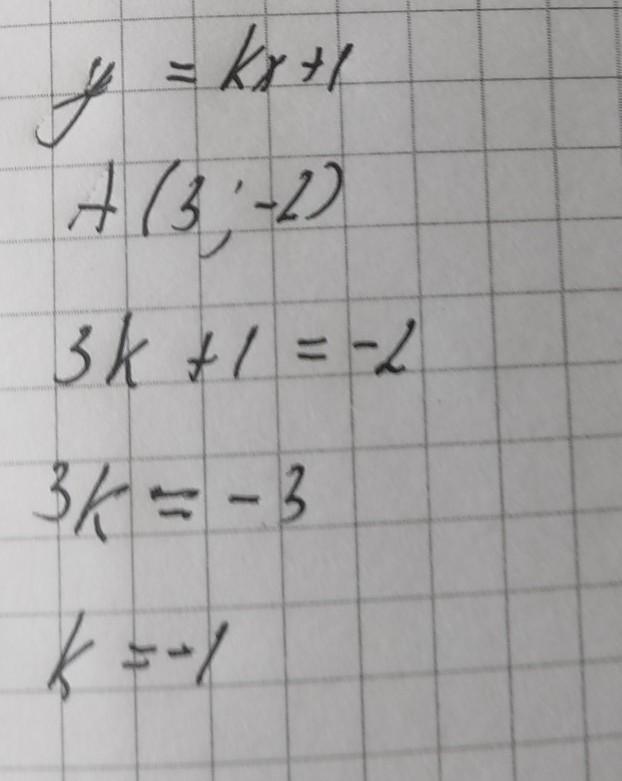 y = kx+1
A (3; -2)
3k + 1 = -2
3k = - 3
k = -1